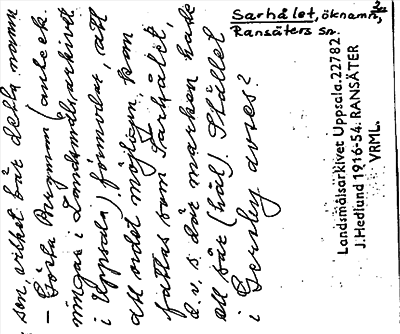 Sarhålet, öknamn,
Ransäters sn.
3
Landsmålsarkivet Uppsala. 22782
J. Hedlund 1916-54. RANSÄTER
VRML.
son vilket bär detta namn
— Gösta Bergman (anteck-
ningar i Landsmålsarkivet
i Uppsala) förmodar, att
att ordet möjligen kan
fattas som Sårhålet,
d.v.s. där marken hade
ett sår (hål). Stället
i Gersby avses?